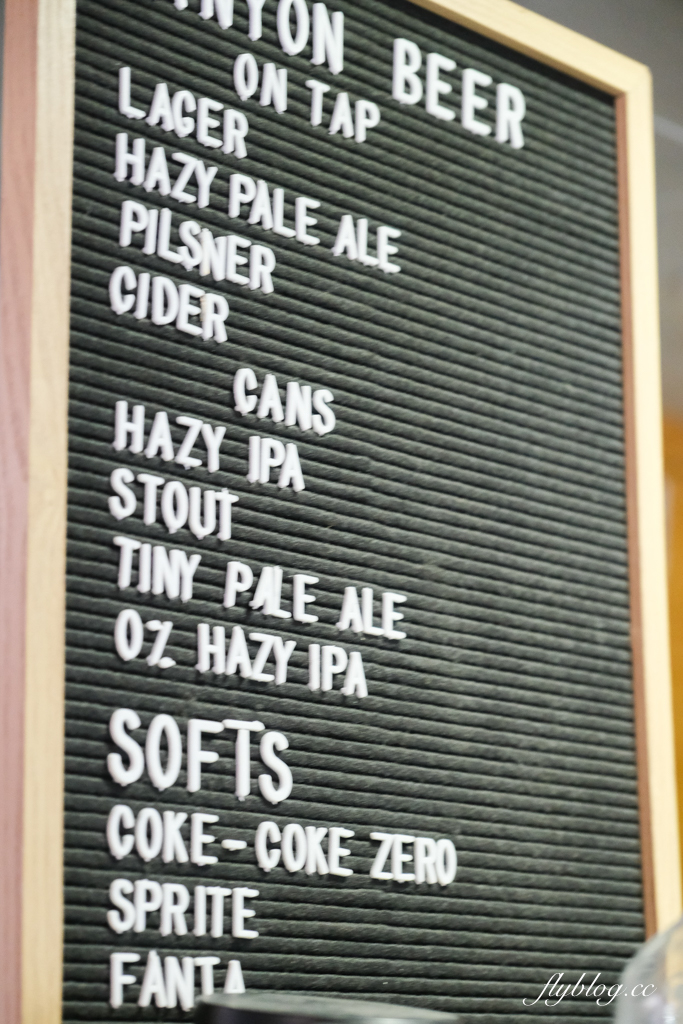 NYON BEER
ON TAP
LAGER
HAZY PALE ALE
PILSNER
CIDER
CANS
HAZY IPA
STOUT
TINY PALE ALE
0% HAZY IPA
SOFTS
COKE-COKE ZERO
SPRITE
FANTA
flyblog.cc